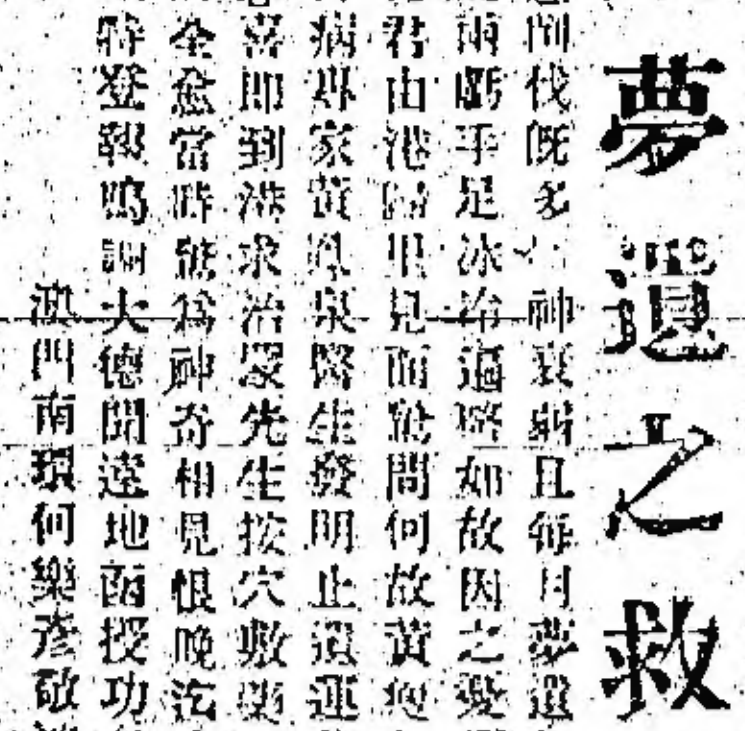 夢遺之救
伐既多神衰弱且每月夢遺
兩虧手足冰冷遍如故因之憂
君由港歸里見面驚問何故黃
病專家黃泉醫生發明止遺運
喜即到港求治先生按穴敷藥
全愈當時驚為神奇相見恨晚迄
特登報鳴謝大德聞遠地函授功
澳門南環何樂彥敬